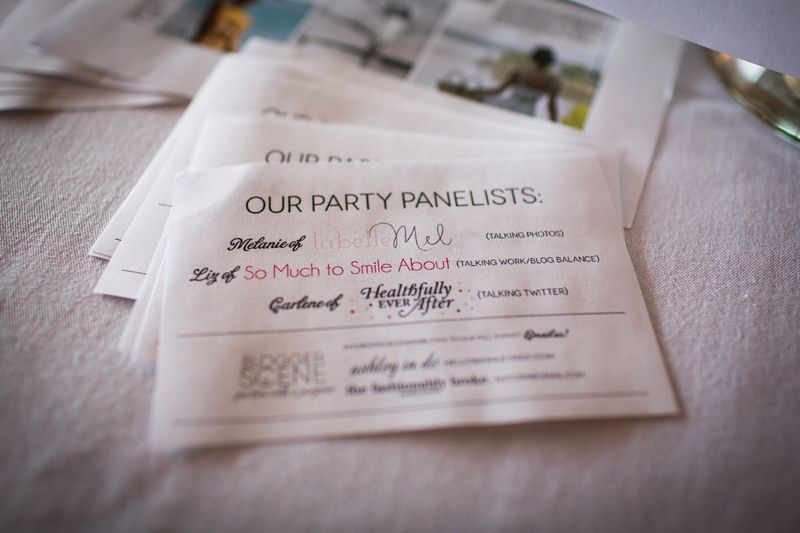 OUR PARTY PANELISTS:
Melanie of labelleMel (TALKING PHOTOS)
Liz of So Much to Smile About (TALKING WORK/BLOG BALANCE)
Carlene of Healthfully EVER After (TALKING TWITTER)
BLOGGER
SCENE
ashley in dc
the fashionably broke
OUR
OUR PAR